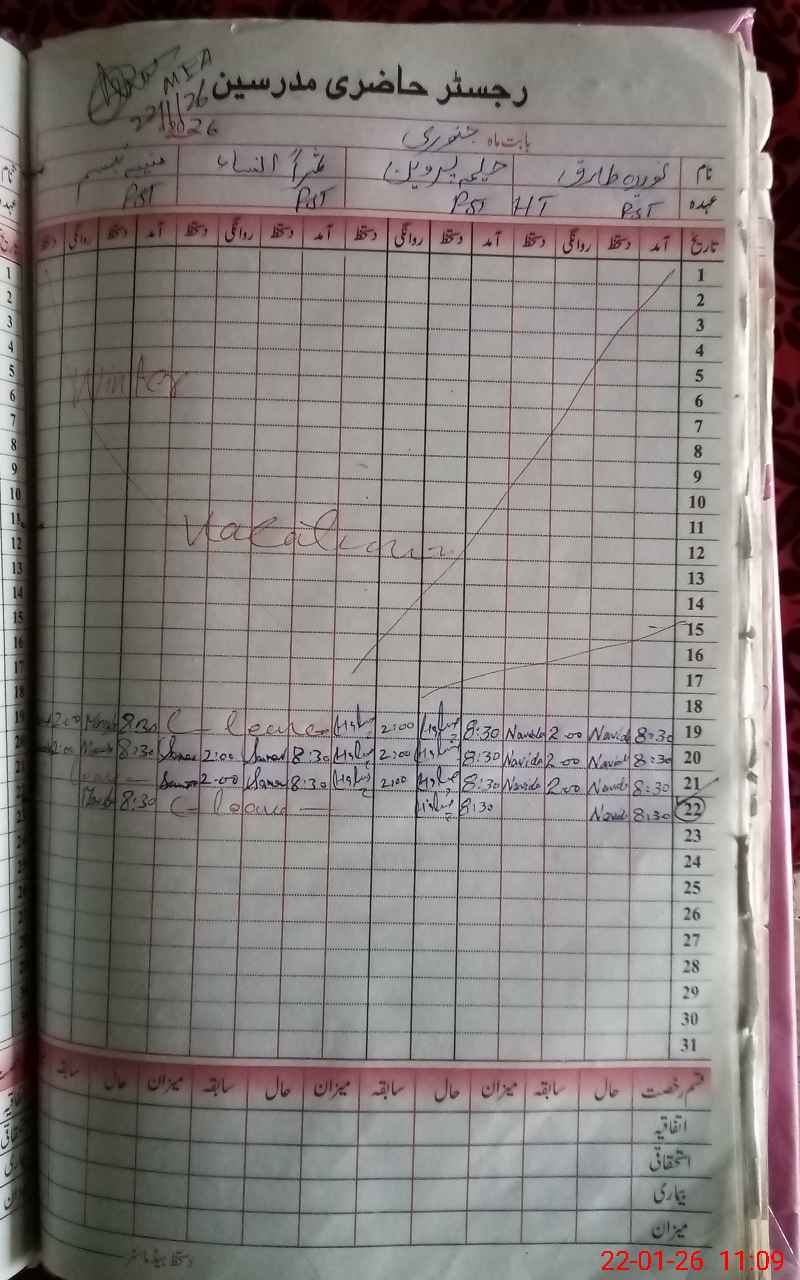 MEA
22/1/26
رجسٹر حاضری مدرسین
بابت ماہ جنوری 2026
نام نویدہ طارق حلیمہ پروین ثمراً النساء
عہدہ PST HT PST PST PST
تاریخ آمد دستخط روانگی دستخط آمد دستخط روانگی دستخط آمد دستخط روانگی دستخط آمد دستخط روانگی دستخط
1
2
3
4
5
Winter
6
7
8
9
10
11
Vacations
12
13
14
15
16
17
18
19 8:30 Navida 2:00 Navida 8:30 حلیمہ 2:00 حلیمہ C- leave 8:30 2:00
20 8:30 Navida 2:00 Navida 8:30 حلیمہ 2:00 حلیمہ 8:30 2:00 8:30 2:00
21 8:30 Navida 2:00 Navida 8:30 حلیمہ 2:00 حلیمہ 8:30 2:00 leave
22 8:30 Navida 8:30 حلیمہ C- leave 8:30
23
24
25
26
27
28
29
30
31
قسم رخصت حال سابقہ میزان حال سابقہ میزان حال سابقہ میزان حال سابقہ
اتفاقیہ
استحقاقی
بیماری
میزان
دستخط ہیڈ ماسٹر
22-01-26 11:09